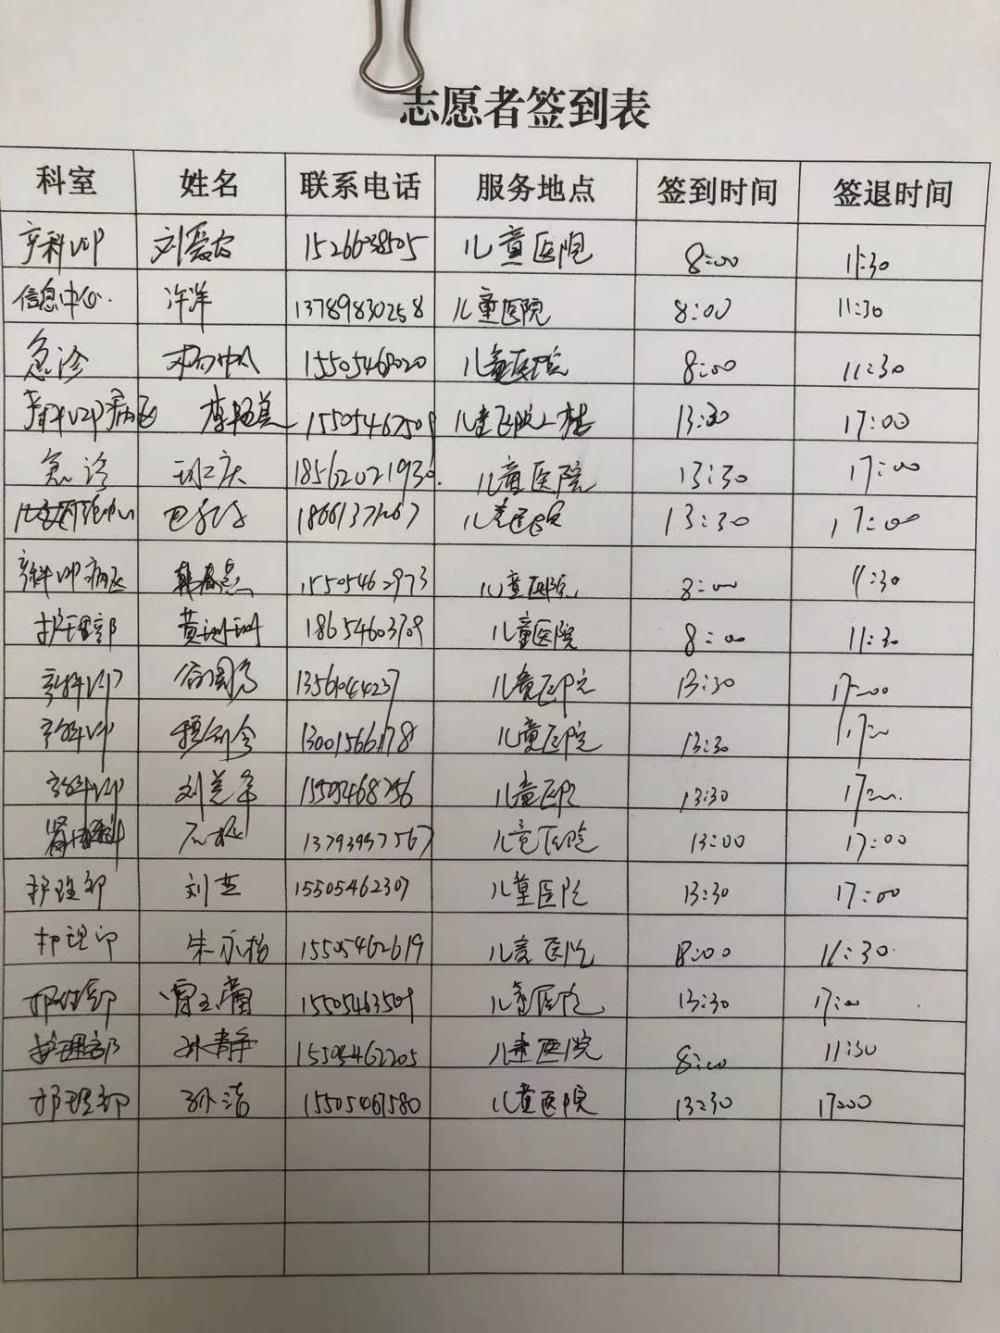 志愿者签到表
科室 姓名 联系电话 服务地点 签到时间 签退时间
产科VIP 刘爱 15266038505 儿童医院 8:00 11:30
信息中心 许洋 13789830258 儿童医院 8:00 11:30
急诊 15505468020 儿童医院 8:00 11:30
产科VIP病区 李艳美 儿童医院 13:30 17:00
急诊 18562021930 儿童医院 13:30 17:00
儿童医院 13:30 17:00
产科VIP病区 韩春燕 15505462973 儿童医院 8:00 11:30
护理部 黄珊珊 18654603709 儿童医院 8:00 11:30
产科VIP 儿童医院 13:30 17:00
产科VIP 13001566178 儿童医院 13:30 17:00
产科VIP 刘兰 15505468256 儿童医院 13:30 17:00
13793957567 儿童医院 13:00 17:00
护理部 刘芝 15505462307 儿童医院 13:30 17:00
护理部 朱永 15505462619 儿童医院 8:00 11:30
护理部 雷玉 15505463509 儿童医院 13:30 17:00
护理部 孙静 15505462205 儿童医院 8:00 11:30
护理部 孙洁 15505467580 儿童医院 13:30 17:00